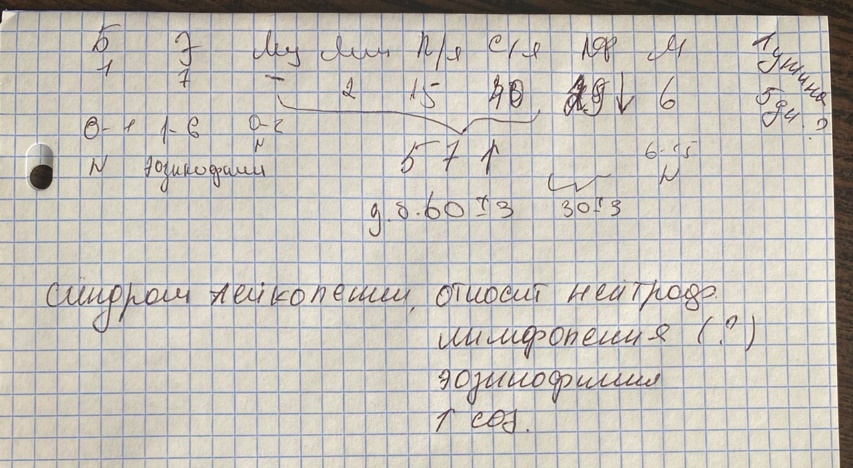 Б Э Мц Мии П/я С/я Лф М
1 7 – 2 15 40 29↓ 6
5 дн.?
0-1 1-6 0-2
N
N эозинофилии
57↑
6-15
N
д.б. 60±3 30±3
Синдром лейкопении, относит нейтроф.
лимфопения (?)
эозинофилия
↑ соэ.